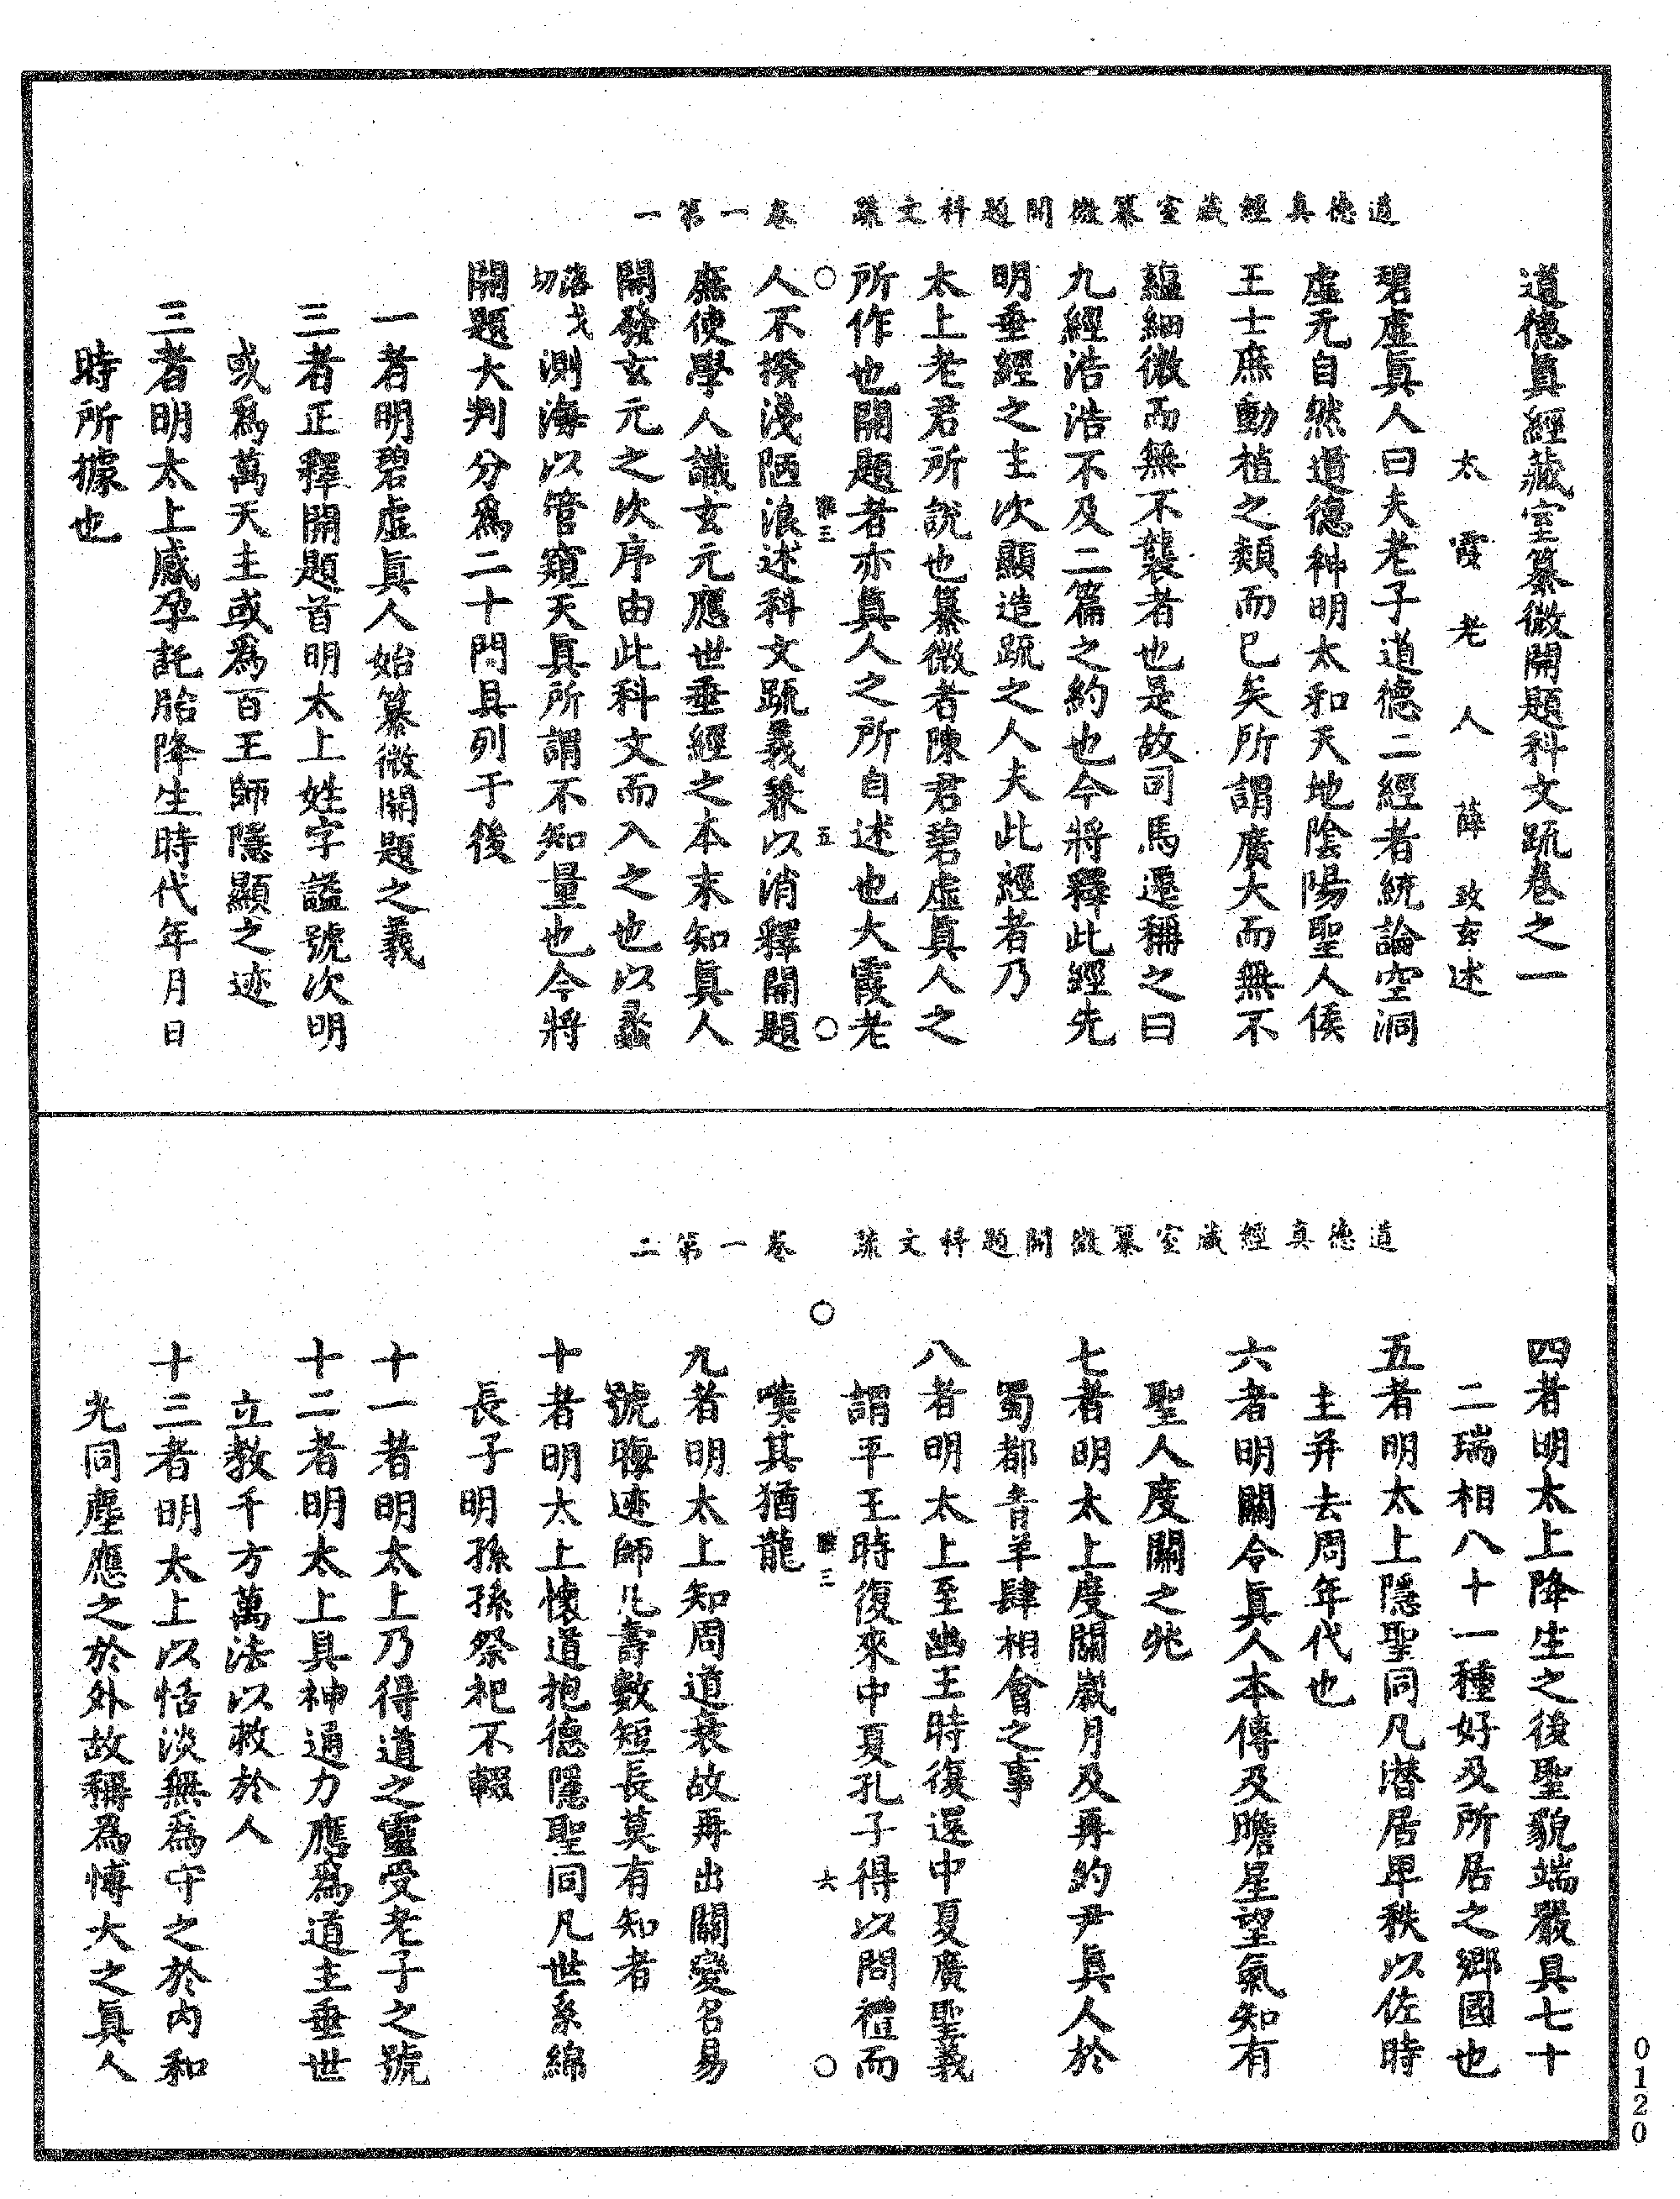 道德真經藏室纂微開題科文疏 卷一第一
道德真經藏室纂微開題科文疏卷之一
太霞老人薛致玄述
碧虛真人曰夫老子道德二經者統論空洞
虛无自然道德神明太和天地陰陽聖人侯
王士庶動植之類而已矣所謂廣大而無不
蘊細微而無不襲者也是故司馬遷稱之曰
九經浩浩不及二篇之約也今將釋此經先
明垂經之主次顯造疏之人夫此經者乃
太上老君所說也纂微者陳君碧虛真人之
所作也開題者亦真人之所自述也大霞老
○ 三 五 ○
人不揆淺陋浪述科文疏義兼以消釋開題
庶使學人識玄元應世垂經之本末知真人
開發玄元之次序由此科文而入之也以蠡
落戈切測海以管窺天真所謂不知量也今將
開題大判分為二十門具列于後
一者明碧虛真人始纂微開題之義
二者正釋開題首明太上姓字謚號次明
或為萬天主或為百王師隱顯之迹
三者明太上感孕託胎降生時代年月日
時所據也
道德真經藏室纂微開題科文疏 卷一第二
四者明太上降生之後聖貌端嚴具七十
二瑞相八十一種好及所居之鄉國也
五者明太上隱聖同凡潛居卑秩以佐時
主并去周年代也
六者明關令真人本傳及瞻星望氣知有
聖人度關之兆
七者明太上度關歲月及再約尹真人於
蜀都青羊肆相會之事
八者明太上至幽王時復還中夏廣聖義
謂平王時復來中夏孔子得以問禮而
○ 三 六 ○
嘆其猶龍
九者明太上知周道衰故再出關變名易
號晦迹師凡壽數短長莫有知者
十者明太上懷道抱德隱聖同凡世系綿
長子明孫孫祭祀不輟
十一者明太上乃得道之靈受老子之號
十二者明太上具神通力應為道主垂世
立教千方萬法以救於人
十三者明太上以恬淡無為守之於內和
光同塵應之於外故稱為博大之真人
0120